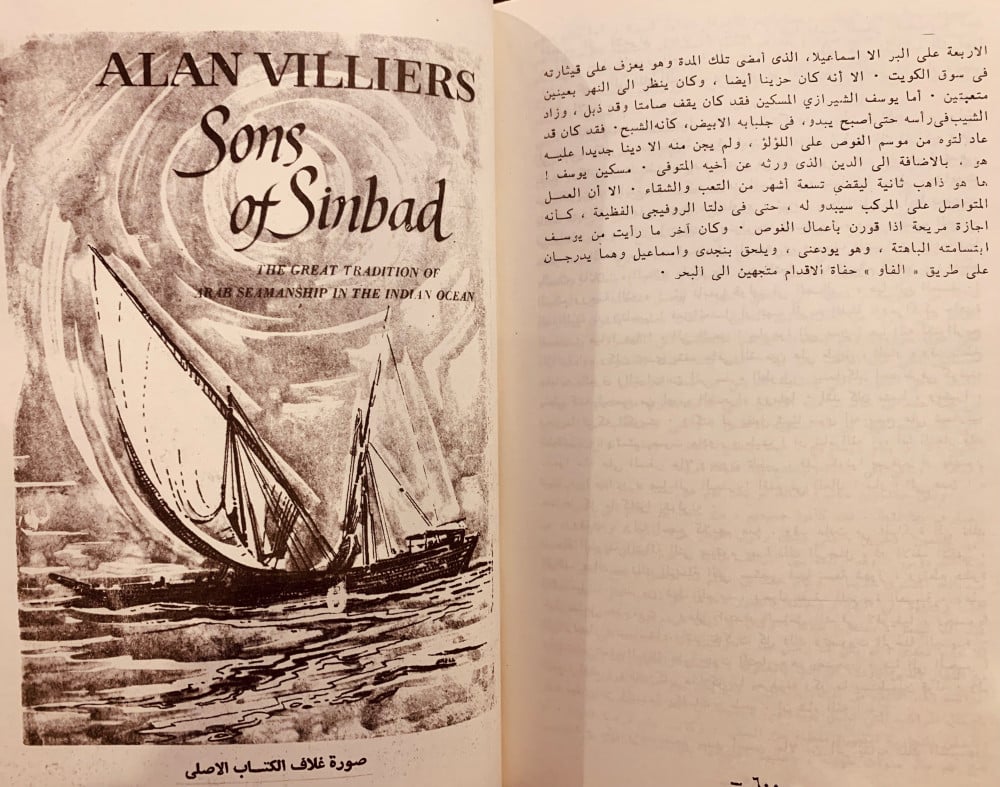 ALAN VILLIERS
Sons
of Sinbad
THE GREAT TRADITION OF
ARAB SEAMANSHIP IN THE INDIAN OCEAN
صورة غلاف الكتاب الاصلى
الاربعة على البر الا اسماعيلا، الذى أمضى تلك المدة وهو يعزف على قيثارته
فى سوق الكويت ٠ الا أنه كان حزينا أيضا ، وكان ينظر الى النهر بعينين
متعبتين ٠ أما يوسف الشيرازي المسكين فقد كان يقف صامتا وقد ذبل ، وزاد
الشيب فى رأسه حتى أصبح يبدو، فى جلبابه الابيض، كأنه الشبح٠ فقد كان قد
عاد لتوه من موسم الغوص على اللؤلؤ ، ولم يجن منه الا دينا جديدا عليه
هو ٠ بالاضافة الى الدين الذى ورثه عن أخيه المتوفى ٠ مسكين يوسف !
ها هو ذاهب ثانية ليقضي تسعة أشهر من التعب والشقاء ٠ الا أن العمل
المتواصل على المركب سيبدو له ، حتى فى دلتا الروفيجى الفظيعة ، كأنه
اجازة مريحة اذا قورن بأعمال الغوص ٠ وكان آخر ما رأيت من يوسف
ابتسامته الباهتة ، وهو يودعنى ، ويلحق بنجدى واسماعيل وهما يدرجان
على طريق « الفاو » حفاة الاقدام متجهين الى البحر ٠
٦٠٠ –